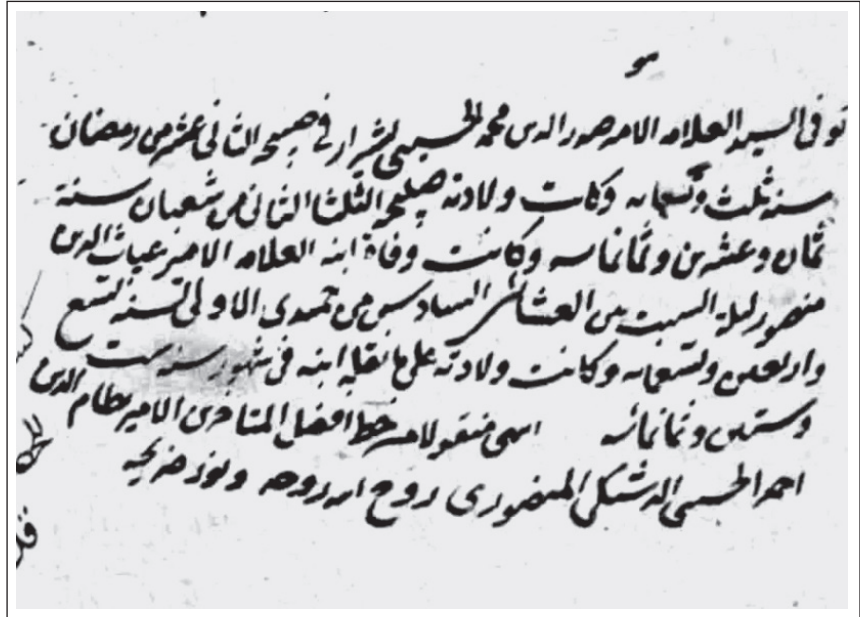 هو
توفى السيد العلامه الامير صدر الدين محمد الحسينى بشيراز فى صبيحه الثانى عشر من رمضان
سنه ثلث وتسعمايه وكانت ولادته صبيحه الثلثا الثانى من شعبان سنة
ثمان وعشرين وثمانمايه وكانت وفاة ابنه العلامه الامير غياث الدين
منصور ليلة السبت بين العشائين السادس من جمدى الاولى لسنه تسع
واربعين وتسعمايه وكانت ولادته على ما نقله ابنه فى شهور سنه ست
وستين وثمانمائه انتهى منقولا من خط افضل المتاخرين الامير نظام الدين
احمد الحسينى الدشتكى المنصورى روح الله روحه ونور ضريحه